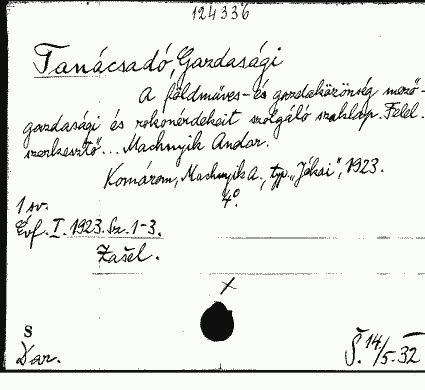 124336
Tanácsadó, Gazdasági
A földmüves- és gazdaközönség mező-
gazdasági és rokonérdekeit szolgáló szaklap. Felel.
szerkesztő... Machnyik Andor.
Komárom, Machnyik A., typ. „Jókai", 1923.
4°.
1 sv.
Évf. I. 1923. Sz. 1-3.
Zašel.
x
S
Dar.
Š. 14/5-32